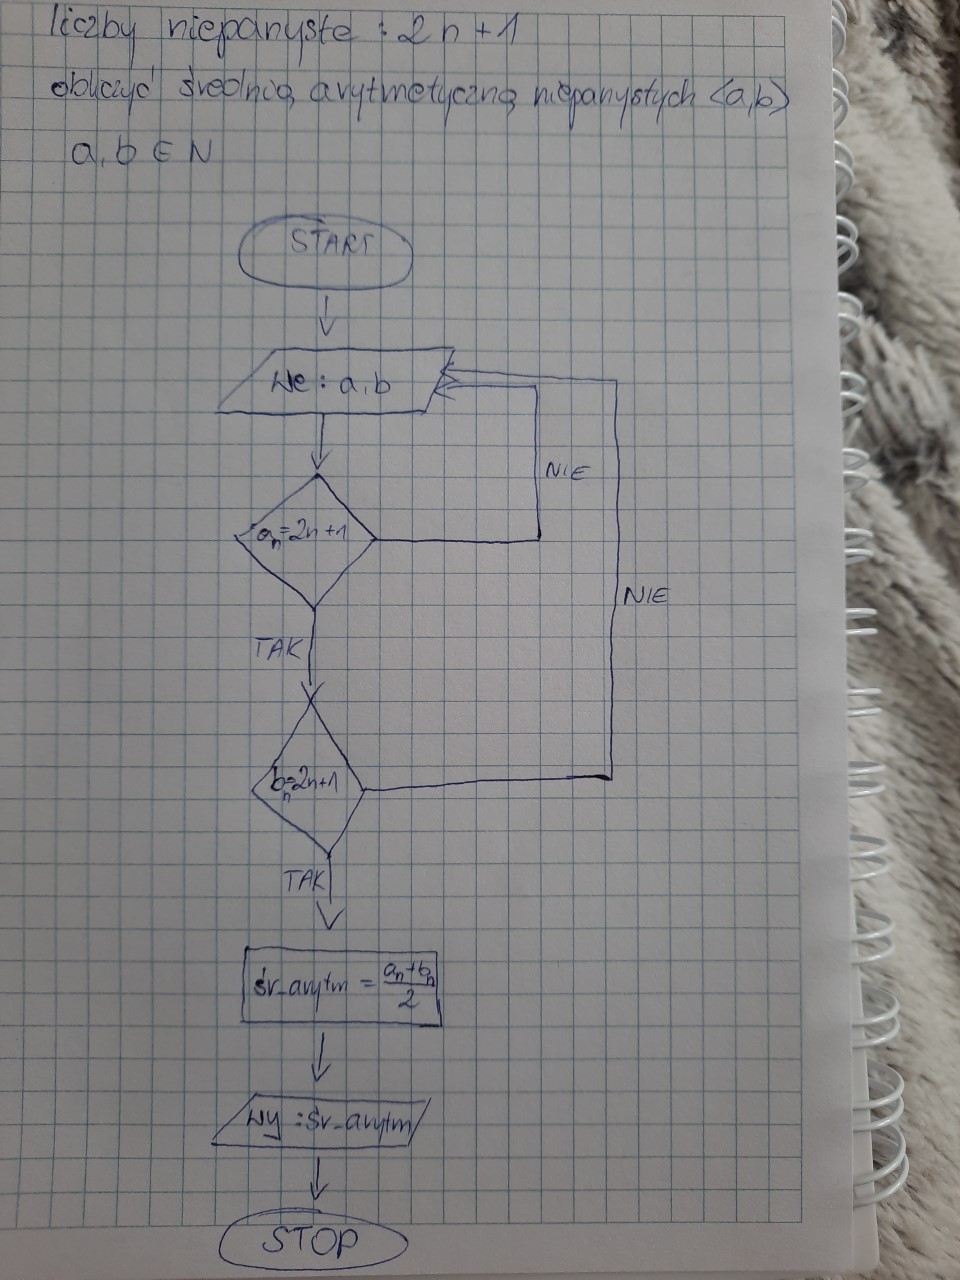 liczby nieparzyste : 2n+1
obliczyć średnią arytmetyczną nieparzystych <a,b>
a, b ∈ N
START
We : a, b
NIE
aₙ=2n+1
NIE
TAK
bₙ=2n+1
TAK
śr_arytm = (aₙ+bₙ)/2
Wy : śr_arytm
STOP